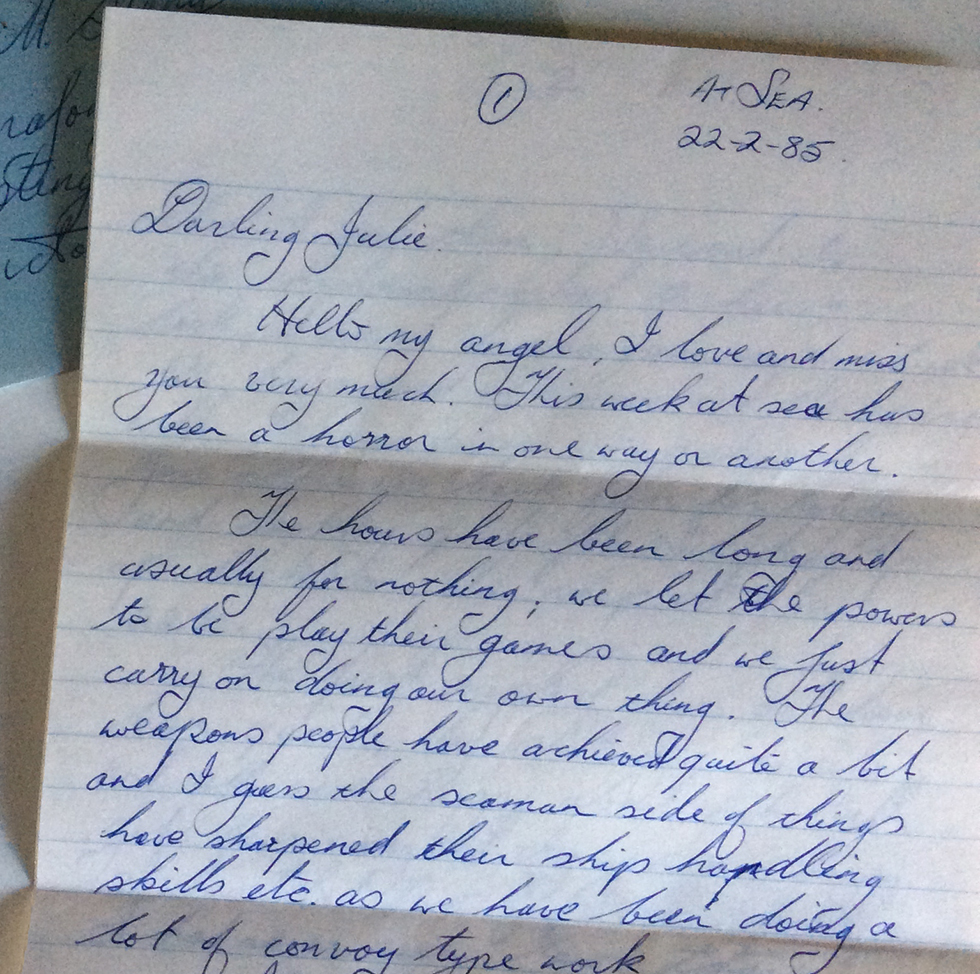 ①
At Sea.
22-2-85.
Darling Julie.
Hello my angel, I love and miss
you very much. This week at sea has
been a horror in one way or another.
The hours have been long and
usually for nothing; we let the powers
to be play their games and we just
carry on doing our own thing. The
weapons people have achieved quite a bit
and I guess the seaman side of things
have sharpened their ship handling
skills etc. as we have been doing a
lot of convoy type work